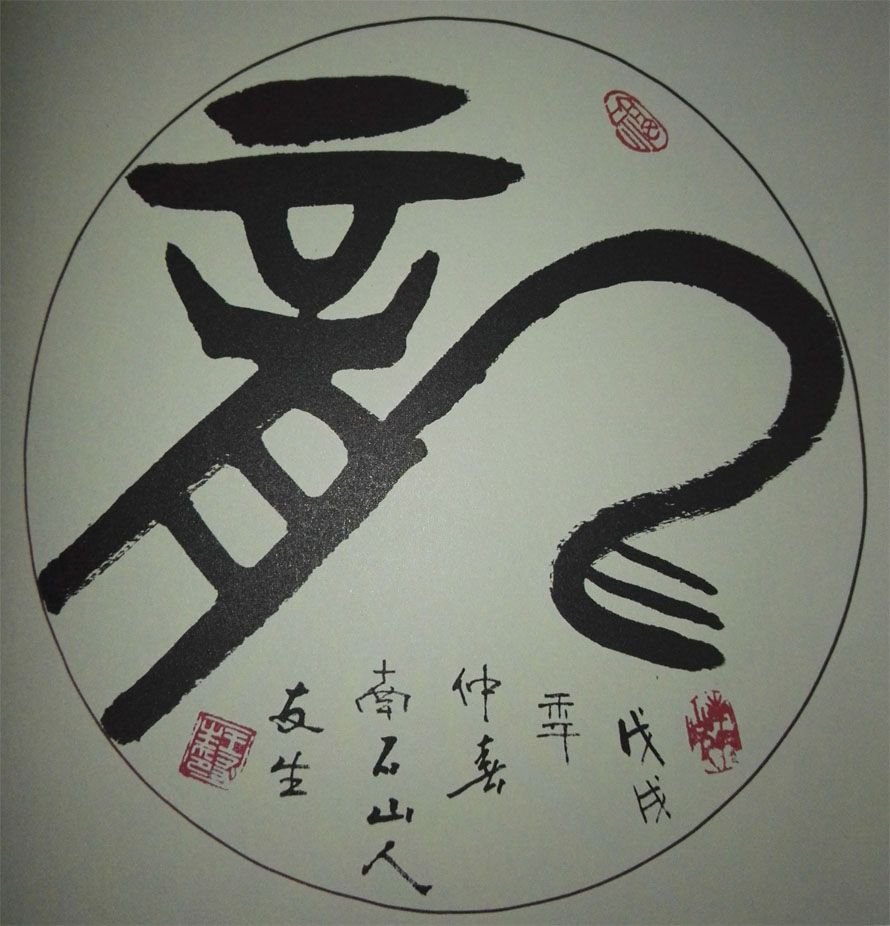 龍
戊戌
年
仲春
南石山人
友生